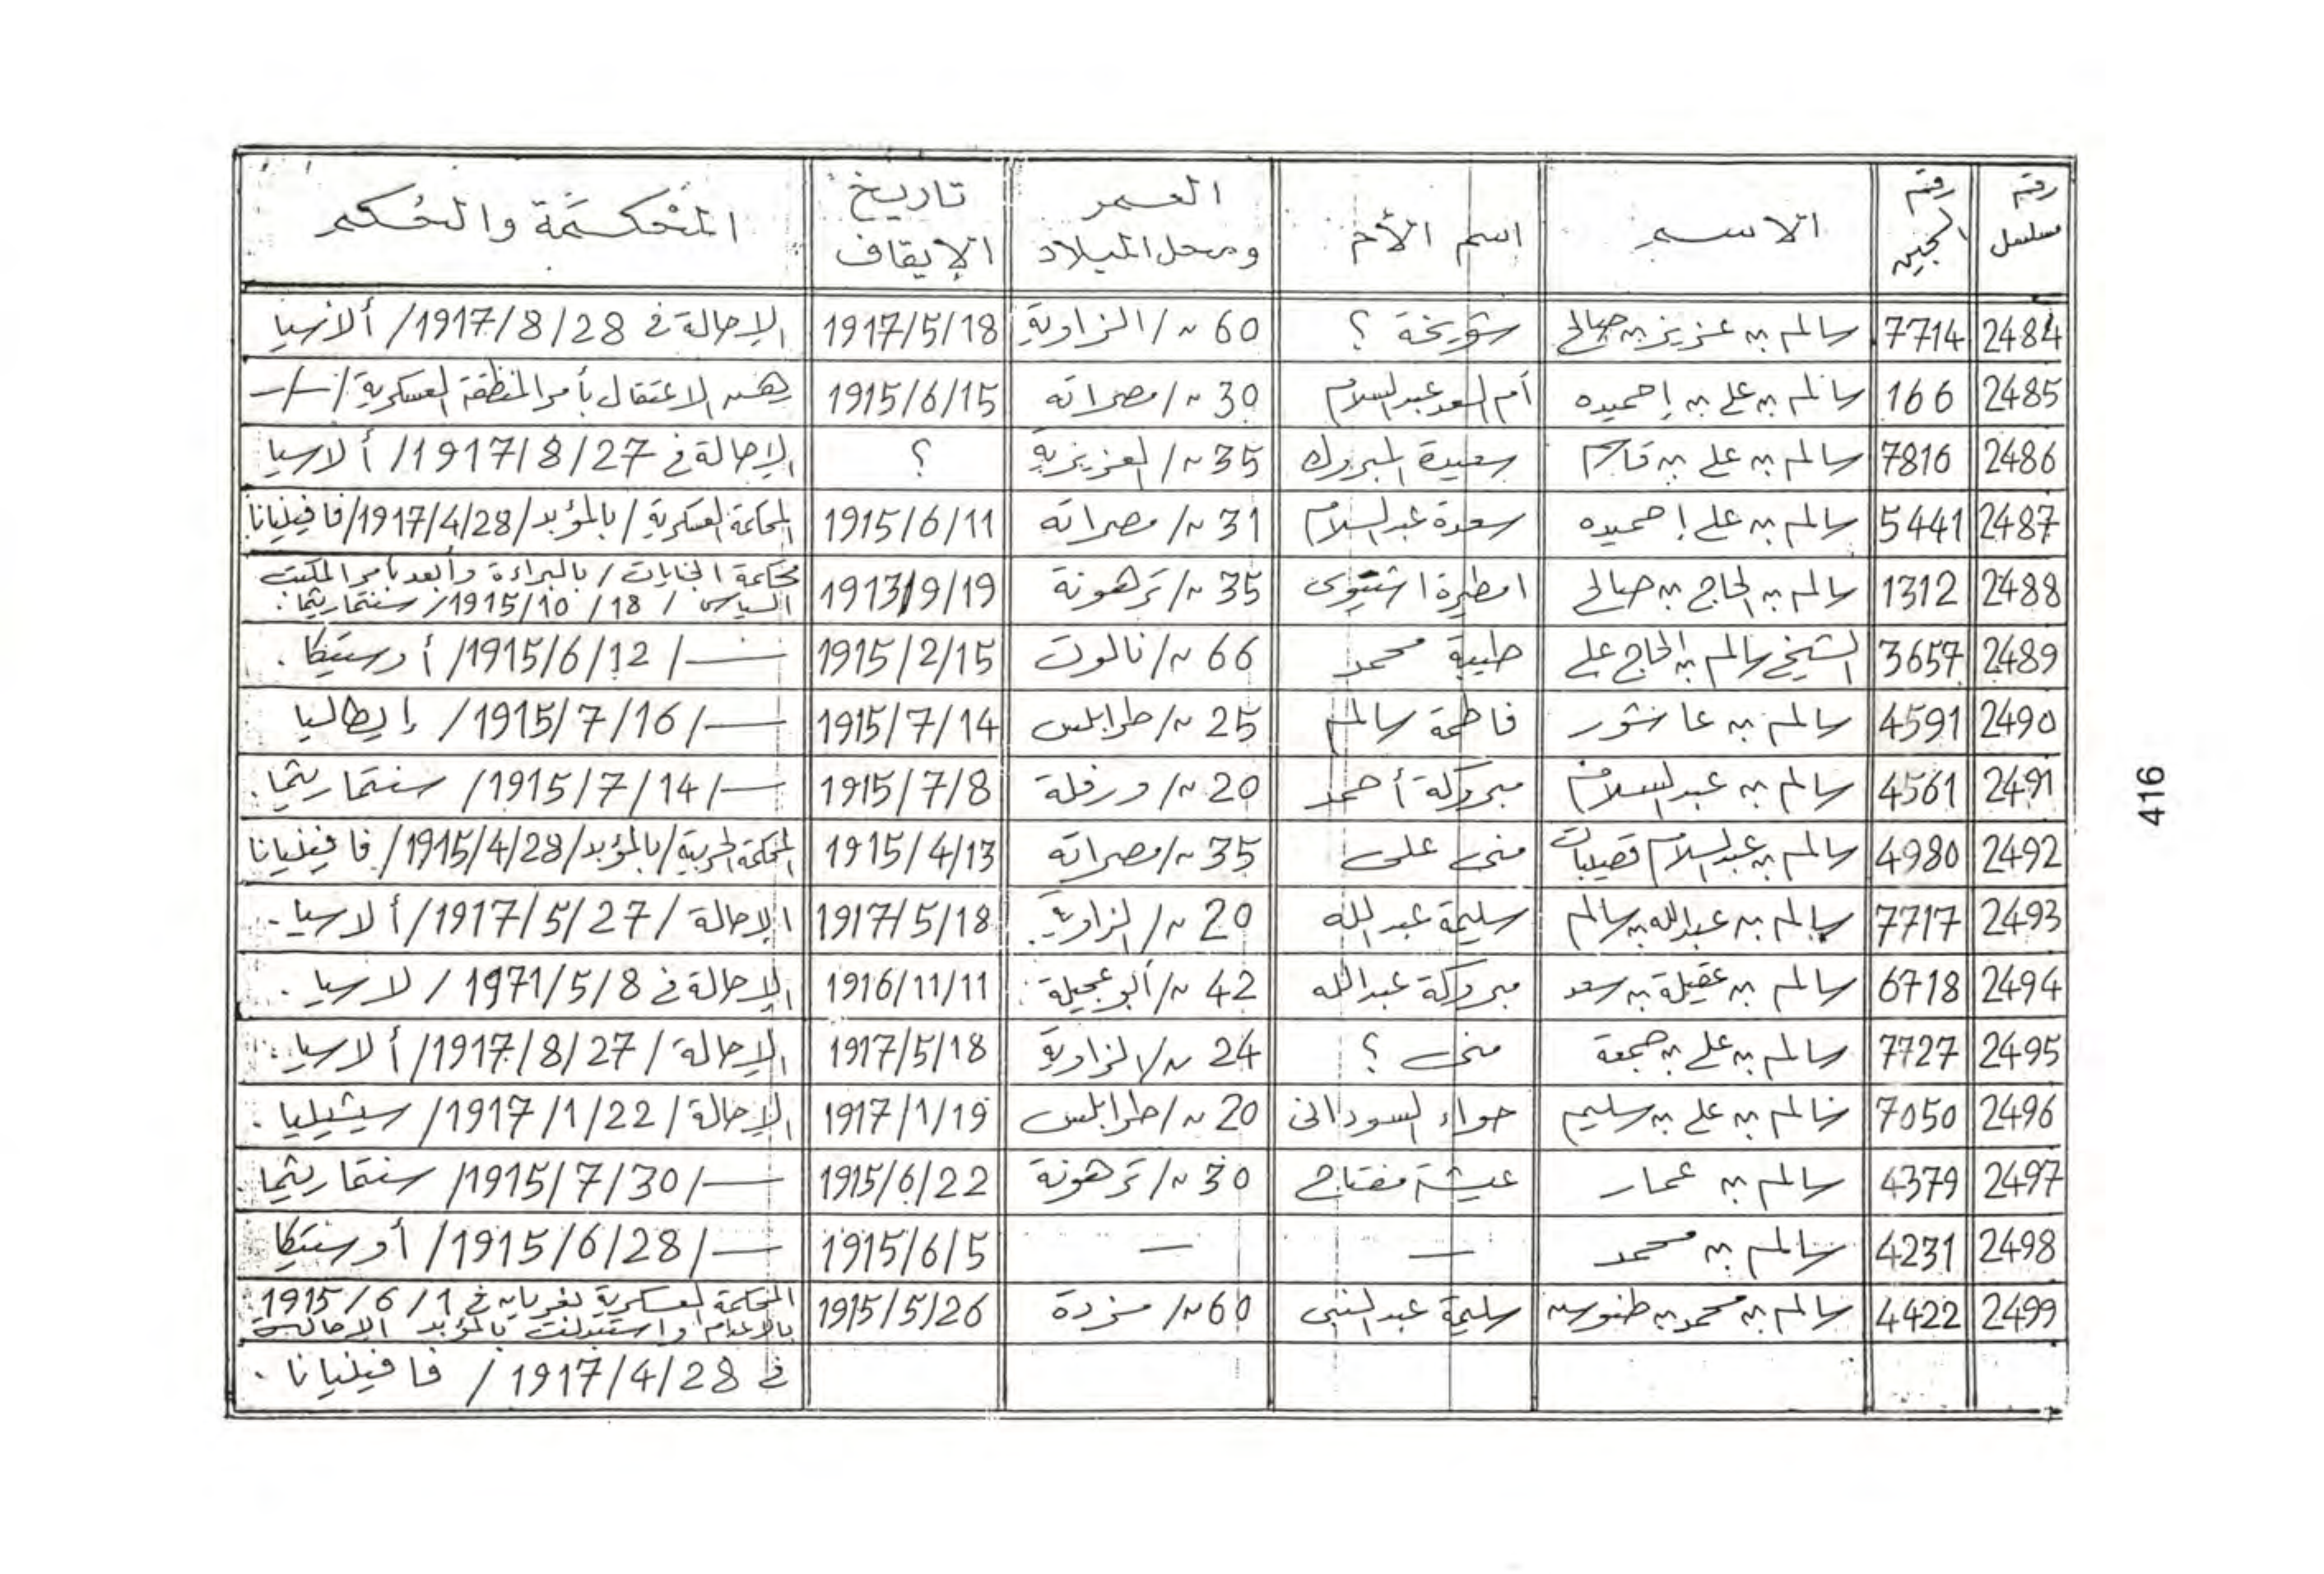 رقم مسلسل | رقم السجين | الاسم | اسم الأم | العمر ومحل الميلاد | تاريخ الإيقاف | المحكمة والحكم
2484 | 7714 | سالم بن عزيز بن صالح | شويخة ؟ | 60 س/ الزاوية | 1917/5/18 | الإحالة في 1917/8/28/ ألارسيا
2485 | 166 | سالم بن علي بن إحميده | أم السعد عبدالسلام | 30 س/ مصراته | 1915/6/15 | رهن الاعتقال بأمر المنطقة العسكرية /—/—
2486 | 7816 | سالم بن علي بن قاسم | سعيدة المبروك | 35 س/ العزيزية | ؟ | الإحالة في 1917/8/27/ ألارسيا
2487 | 5441 | سالم بن علي إحميده | سعدة عبدالسلام | 31 س/ مصراته | 1915/6/11 | المحكمة العسكرية / بالمؤبد / 1917/4/28/ فافينيانا
2488 | 1312 | سالم بن الحاج بن صالح | امطيرة اشتيوى | 35 س/ ترهونة | 1913/9/19 | محكمة الجنايات / بالبراءة وأبعد بأمر المكتب
السياسى / 1915/10/18/ سنتماريثما.
2489 | 3657 | الشيخ سالم بن الحاج علي | طيبة محمد | 66 س/ نالوت | 1915/2/15 | —/ 1915/6/12/ أوستيكا.
2490 | 4591 | سالم بن عاشور | فاطمة سالم | 25 س/ طرابلس | 1915/7/14 | —/ 1915/7/16/ إيطاليا
2491 | 4561 | سالم بن عبدالسلام | مبروكة أحمد | 20 س/ ورفلة | 1915/7/8 | —/ 1915/7/14/ سنتماريثما.
2492 | 4980 | سالم بن عبدالسلام قصيبات | منى على | 35 س/ مصراته | 1915/4/13 | المحكمة الحربية / بالمؤبد / 1915/4/28/ فافينيانا
2493 | 7717 | سالم بن عبدالله بن سالم | سليمة عبدالله | 20 س/ الزاوية. | 1917/5/18 | الإحالة / 1917/5/27/ ألارسيا.
2494 | 6718 | سالم بن عقيلة بن سعد | مبروكة عبدالله | 42 س/ أبوعجيلة | 1916/11/11 | الإحالة في 1971/5/8 / لارسيا.
2495 | 7727 | سالم بن علي بن جمعة | منى ؟ | 24 س/ الزاوية | 1917/5/18 | الإحالة / 1917/8/27/ ألارسيا.
2496 | 7050 | سالم بن علي بن سليم | حواء السودانى | 20 س/ طرابلس | 1917/1/19 | الإحالة / 1917/1/22/ سيشيليا.
2497 | 4379 | سالم بن عمار | عيشة مفتاح | 30 س/ ترهونة | 1915/6/22 | —/ 1915/7/30/ سنتماريثما.
2498 | 4231 | سالم بن محمد | — | — | 1915/6/5 | —/ 1915/6/28/ أوستيكا
2499 | 4422 | سالم بن محمد بن | سليمة عبدالنبى | 60 س/ مزدة | 1915/5/26 | المحكمة العسكرية بغريان في 1915/6/1
بالاعدام واستبدلت بالمؤبد الإحالة
في 1917/4/28 / فافينيانا.
416